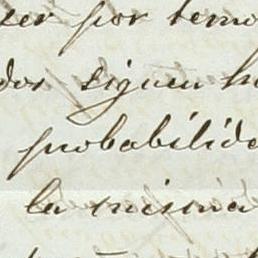 ser por temo
dos siguen h
probabilida
la misma